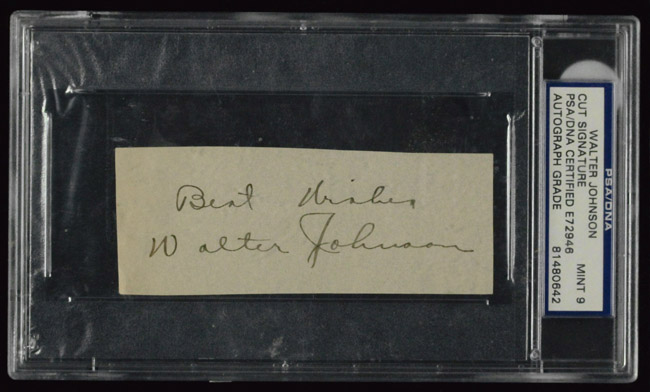 Best Wishes
Walter Johnson
PSA/DNA
WALTER JOHNSON
CUT SIGNATURE MINT 9
PSA/DNA CERTIFIED E72946
AUTOGRAPH GRADE 81480642